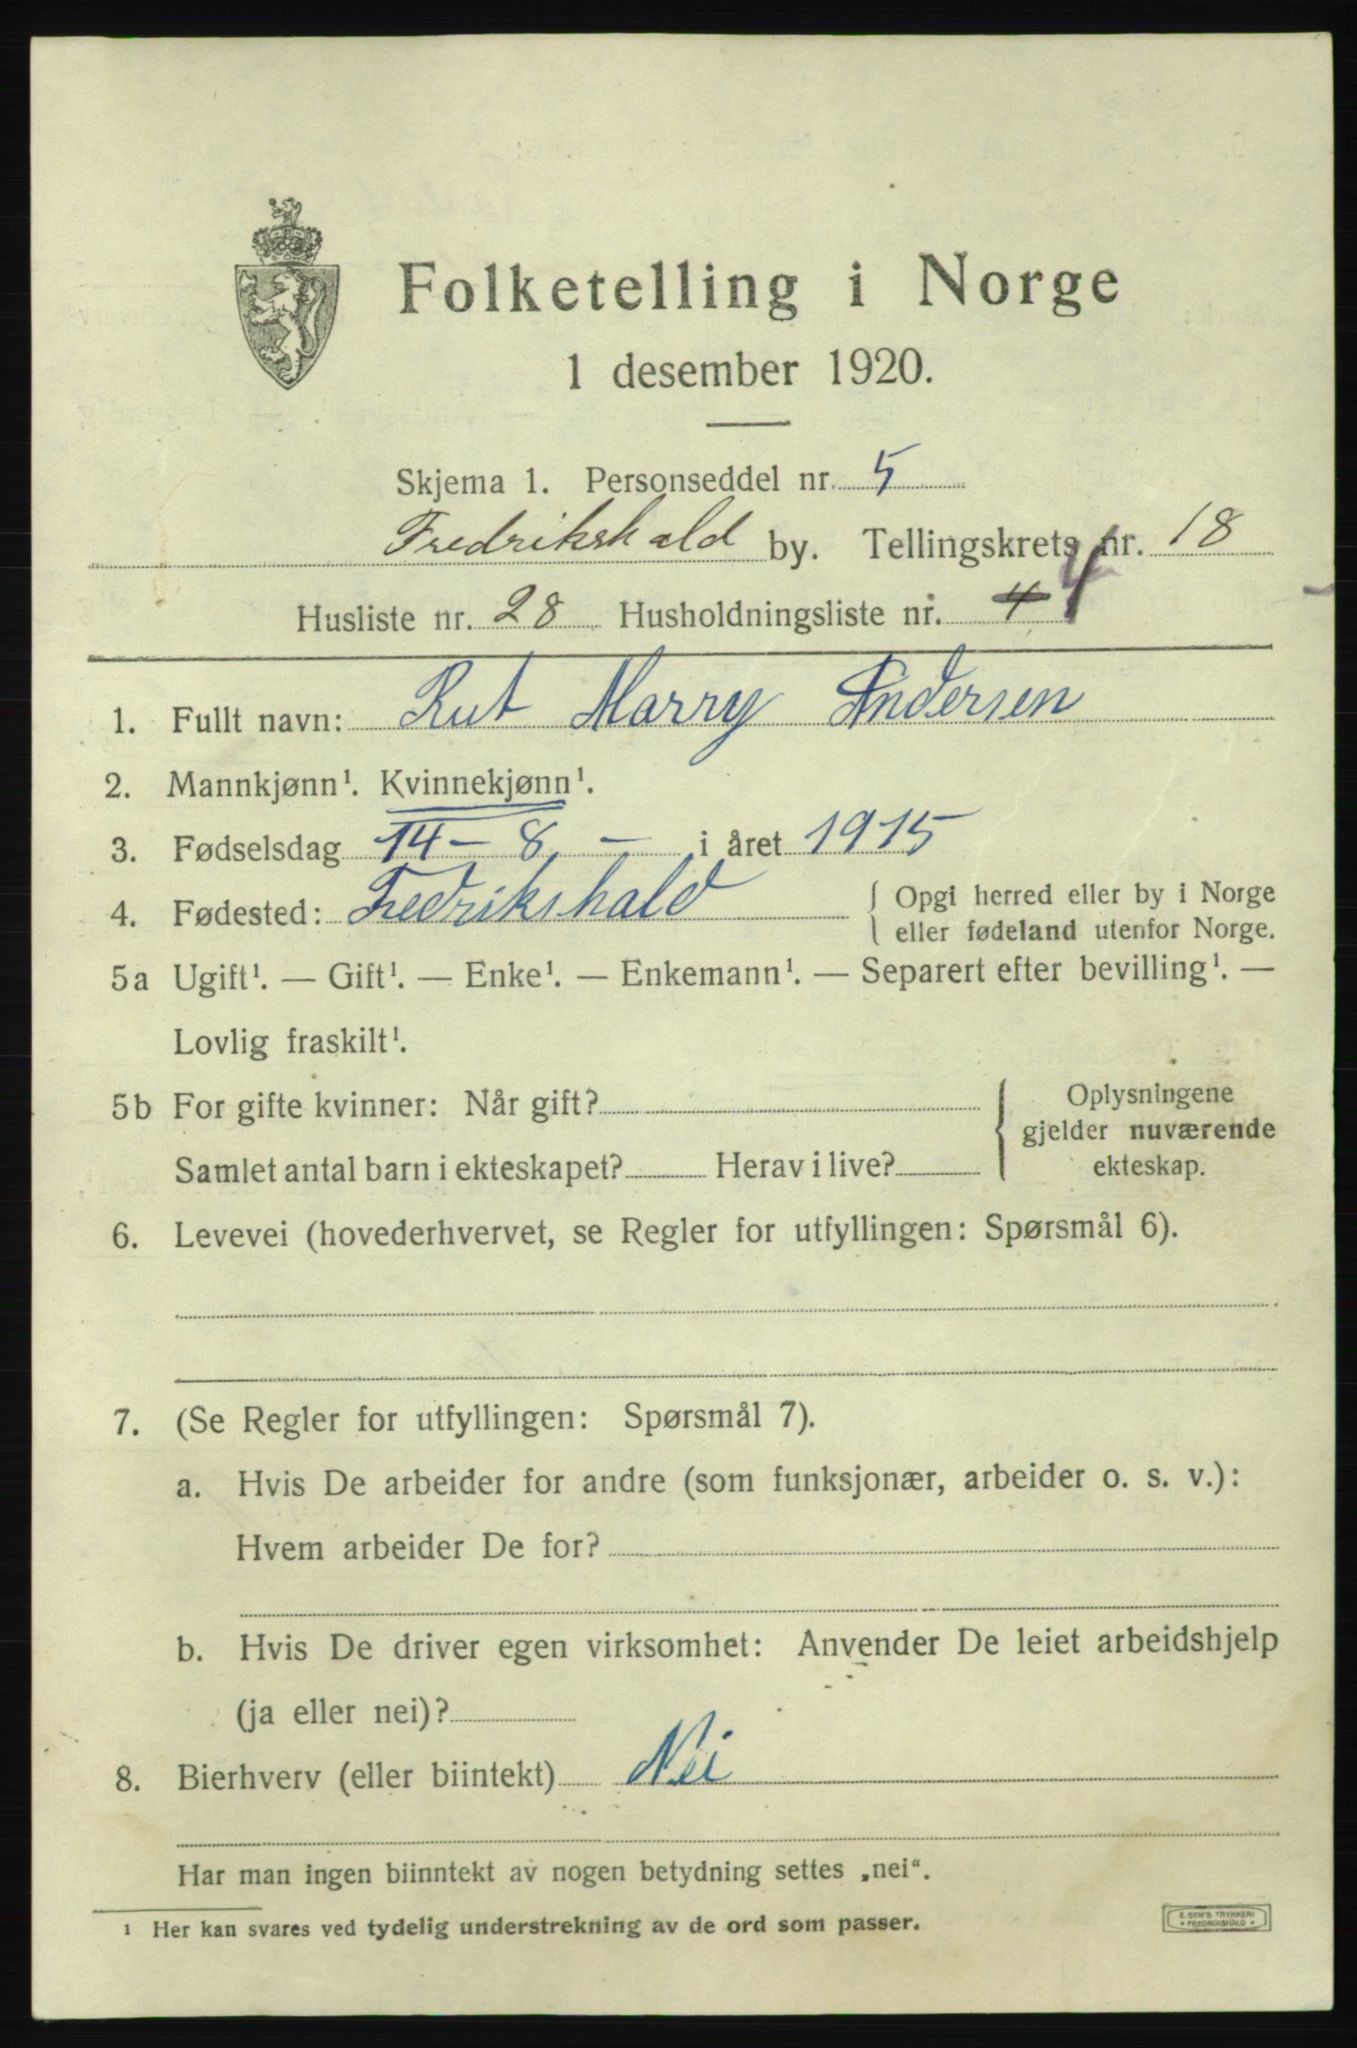 Folketelling i Norge
1 desember 1920.
Skjema 1. Personseddel nr. 5
Fredrikshald by. Tellingskrets nr. 18
Husliste nr. 28 Husholdningsliste nr. 4 4
1. Fullt navn: Rut Marry Andersen
2. Mannkjønn¹. Kvinnekjønn¹.
3. Fødselsdag 14 – 8 – i året 1915
4. Fødested: Fredrikshald { Opgi herred eller by i Norge
eller fødeland utenfor Norge.
5a Ugift¹. — Gift¹. — Enke¹. — Enkemann¹. — Separert efter bevilling¹. —
Lovlig fraskilt¹.
5b For gifte kvinner: Når gift? { Oplysningene
gjelder nuværende
Samlet antal barn i ekteskapet? Herav i live? ekteskap.
6. Levevei (hovederhvervet, se Regler for utfyllingen: Spørsmål 6).
7. (Se Regler for utfyllingen: Spørsmål 7).
a. Hvis De arbeider for andre (som funksjonær, arbeider o. s. v.):
Hvem arbeider De for?
b. Hvis De driver egen virksomhet: Anvender De leiet arbeidshjelp
(ja eller nei)?
8. Bierhverv (eller biintekt) Nei
Har man ingen biinntekt av nogen betydning settes „nei“.
¹ Her kan svares ved tydelig understrekning av de ord som passer.
E. SEM'S TRYKKERI
FREDRIKSHALD